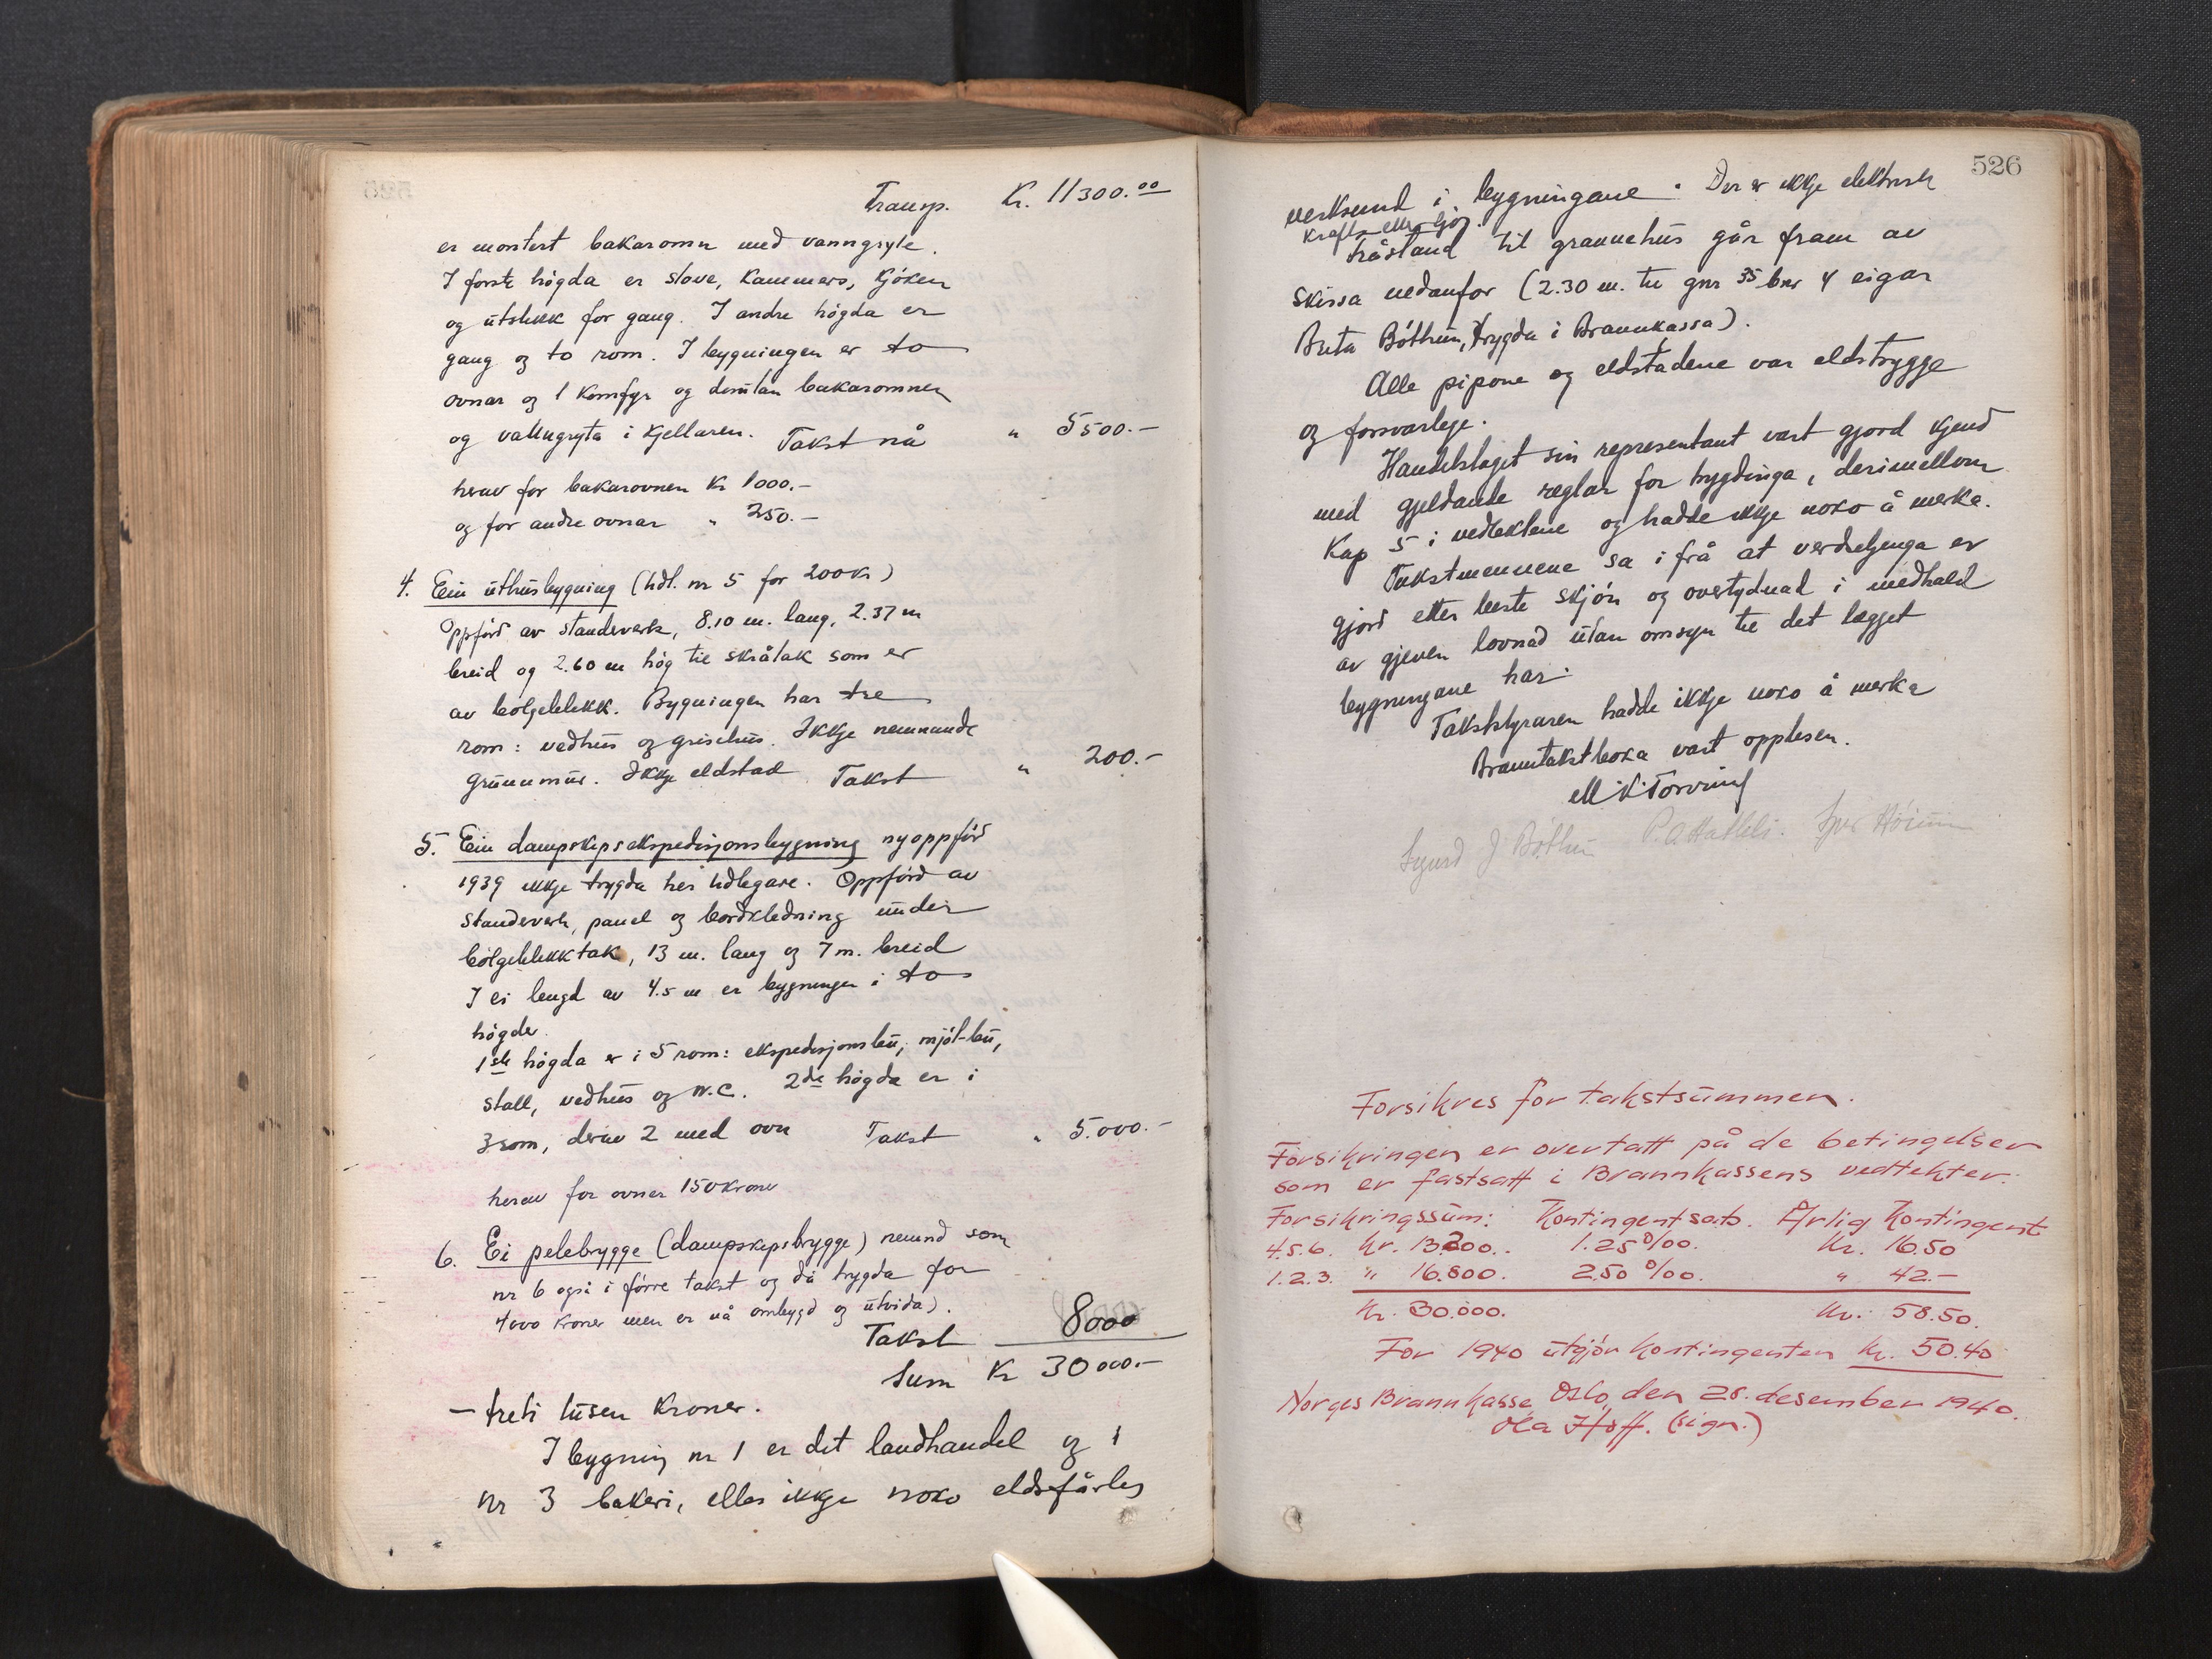 Transp. Kr. 11300.00
er montert bakaromn med vanngryte.
I forste högda er stove, kammers, kjöken
og utstikk for gang. I andre högda er
gang og to rom. I bygningen er to
ovnar og 1 komfyr og desutan bakaromnen
og vanngryta i kjellaren. Takst nå " 5500.-
herav for bakarovnen Kr 1000.-
og for andre ovnar " 250.-
4. Ein uthusbygning (tidl. nr 5 for 200 kr)
Oppförd av standverk, 8.10 m. lang, 2.37 m
breid og 2.60 m hög til skråtak som er
av bölgeblikk. Bygningen har tre
rom: vedhus og grisehus. Ikkje nemnande
grunnmur. Ikkje eldstad Takst " 200.-
5. Ein dampskipsekspedisjonsbygning nyoppförd
1939 ikkje trygda her tidlegare. Oppförd av
standverk, panel og bordkledning under
bölgeblikktak, 13 m. lang og 7 m. breid
I ei lengd av 4.5 m er bygningen i to
högder.
1ste högda er i 5 rom: ekspedisjonsbu, mjöl-bu,
stall, vedhus og W.C. 2dre högda er i
3 rom, derav 2 med ovn Takst " 5.000.-
herav for ovner 150 kroner
6. Ei pelebrygge (dampskipsbrygge) nemnd som
nr 6 ogsi i förre takst og då trygda for
4000 kroner men er nå ombygd og utvida).
Takst 8000
Sum Kr 30000.-
- treti tusen kroner.
I bygning nr 1 er det landhandel og i
nr 3 bakeri, elles ikkje noko eldsfårleg
526
verksemd i bygningane. Der er ikkje elektrisk
kraft eller ljos.
Fråstand til grannehus går fram av
skissa nedanfor (2.30 m. til gnr 35 bnr 4 eigar
Brita Böthun, trygda i Brannkassa).
Alle pipone og eldstadene var eldstrygge
og forsvarlege.
Handelslaget sin representant vart gjord kjend
med gjeldande reglar for trygdinga, derimellom
Kap 5 i vedtektene og hadde ikkje noko å merka.
Takstmennene sa i frå at verdsetjenga er
gjord etter beste skjön og overtydnad i medhald
av gjeven lovnad utan omsyn til det lægget
bygningane har.
Takststyraren hadde ikkje noko å merka
Branntakstboka vart opplesen.
M. K. Torvund
Sigurd J Böthun P. A. Hatleli. Iver Höinn
Forsikres for takstsummen.
Forsikringen er overtatt på de betingelser
som er fastsatt i Brannkassens vedtekter.
Forsikringssum: Kontingentsats. Årlig Kontingent
4.5.6. Kr. 13200.. 1.25 0/00. Kr. 16.50
1.2.3. " 16.800. 2.50 0/00. " 42.-
Kr. 30.000. Kr. 58.50.
For 1940 utgjör kontingenten kr. 50.40
Norges Brannkasse Oslo, den 28. desember 1940.
Ola Hoff. (sign.)